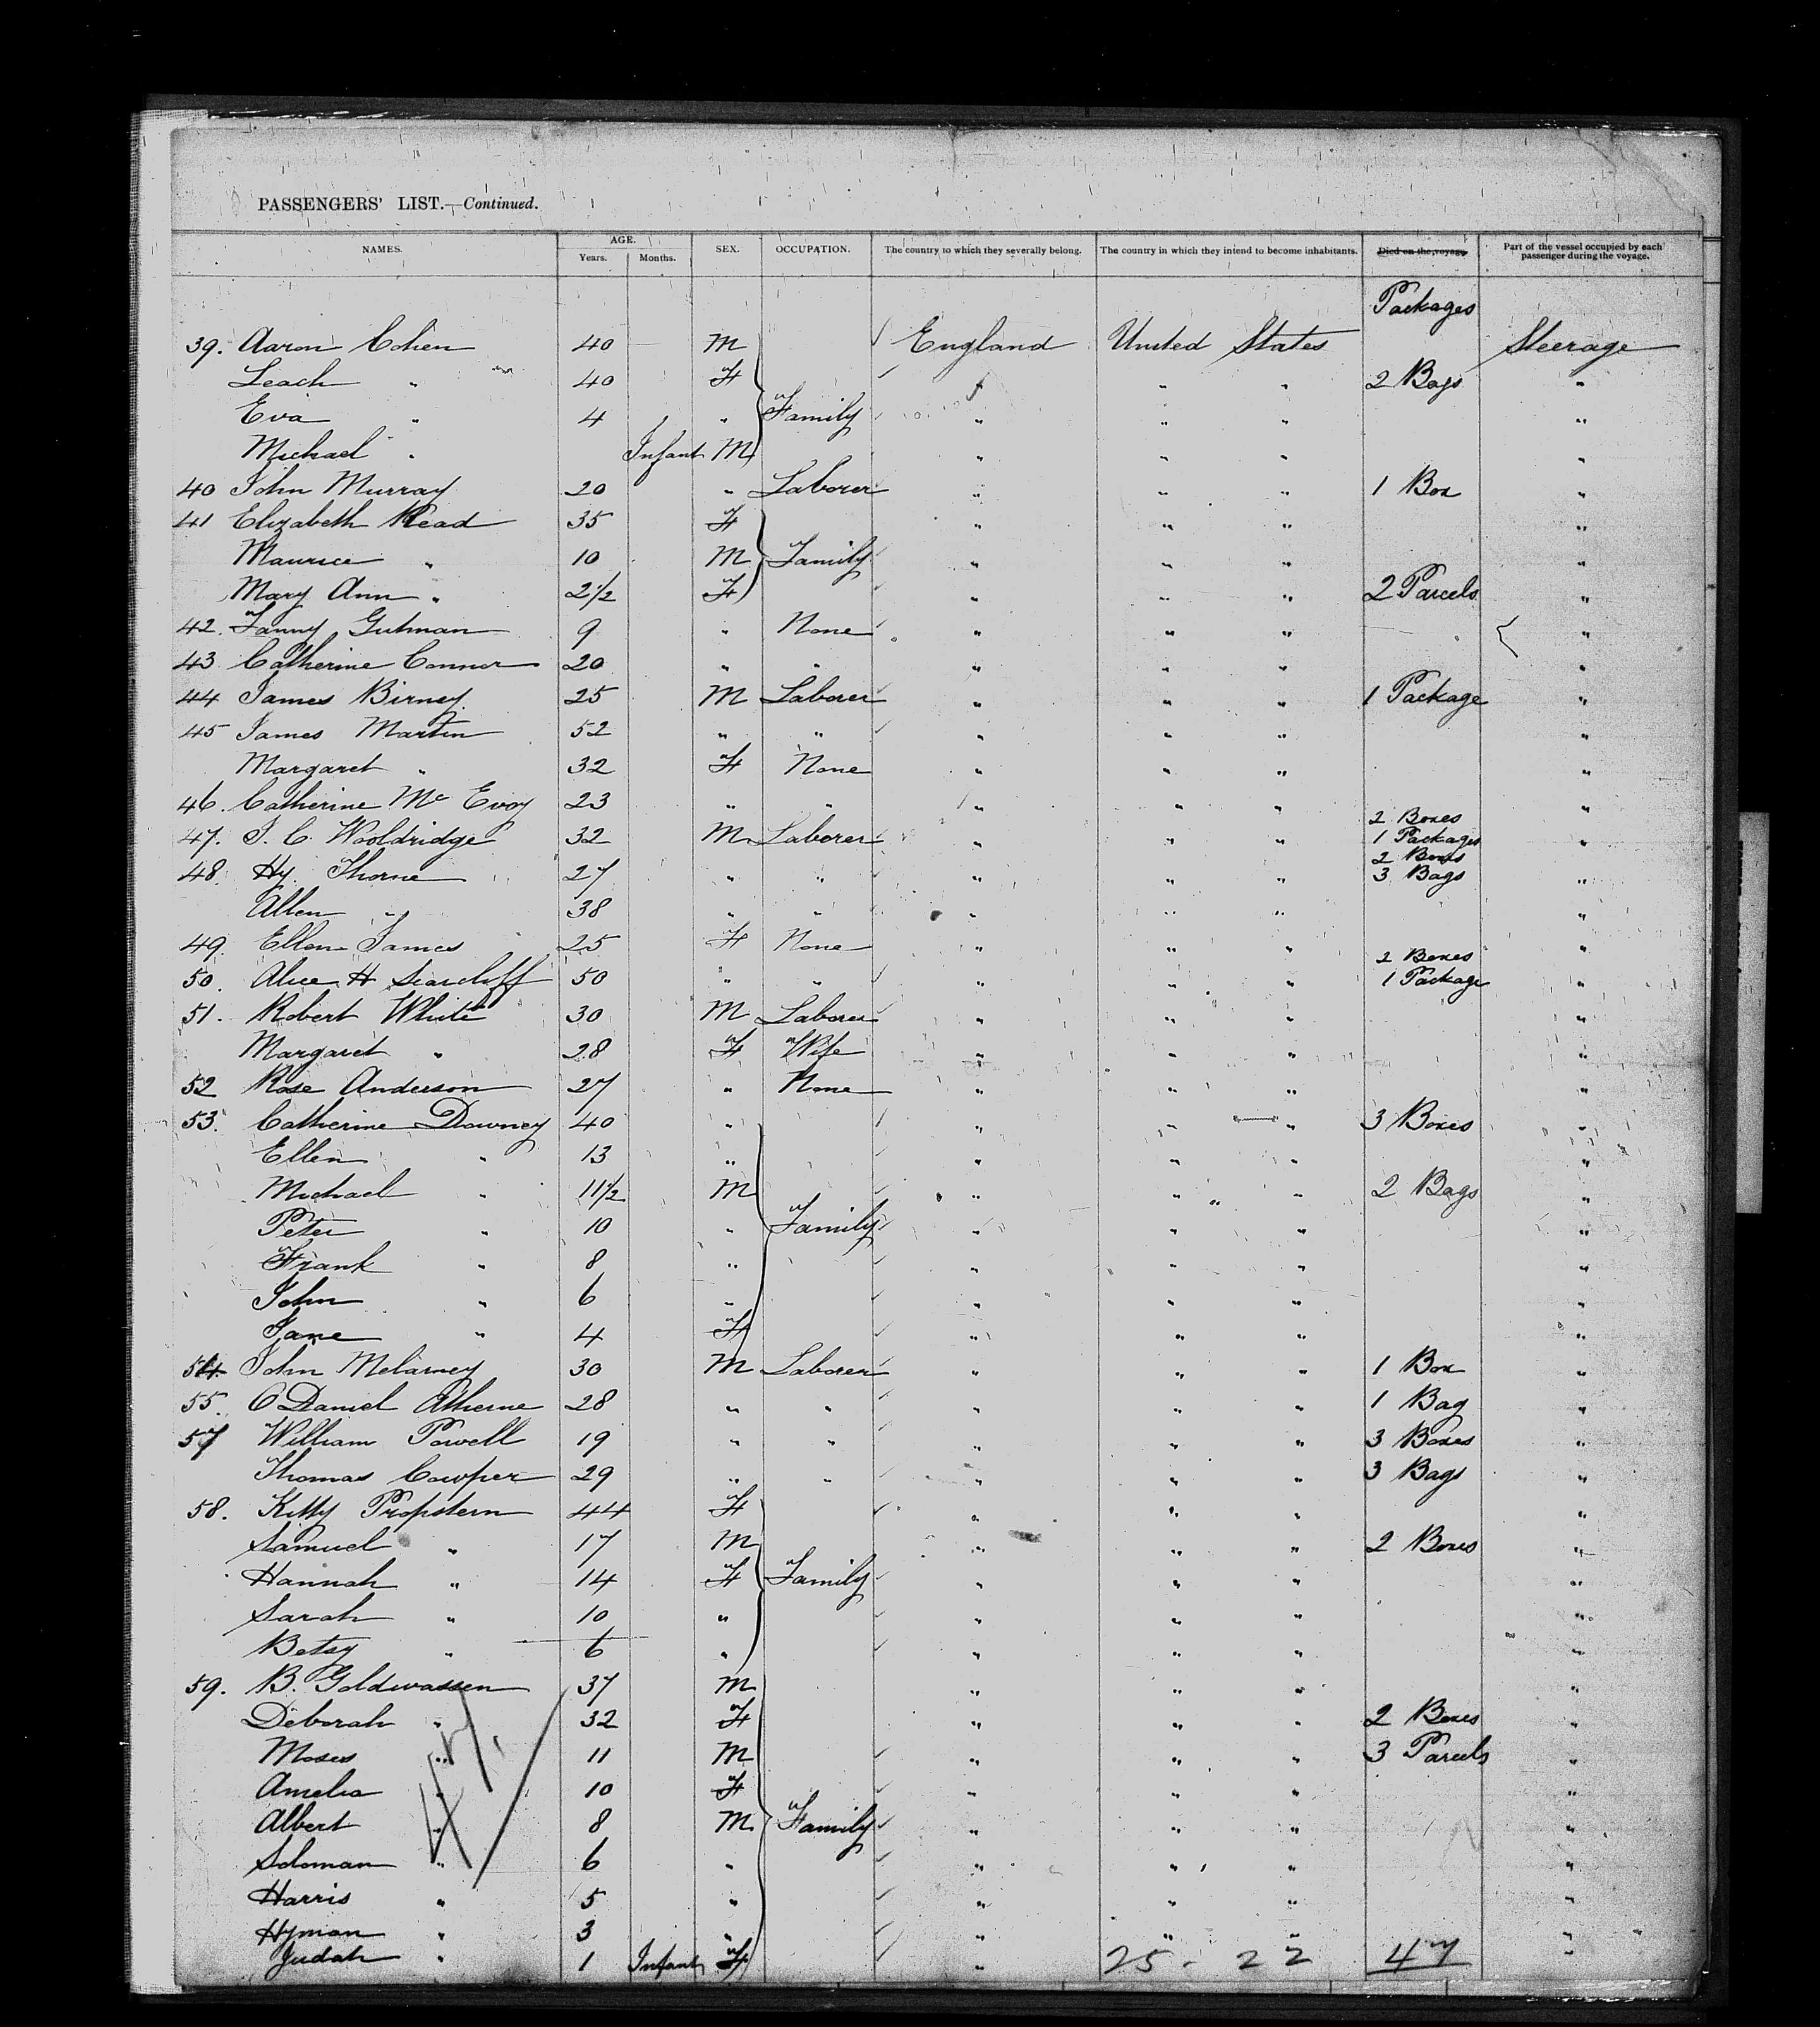 PASSENGERS' LIST.—Continued.
NAMES. AGE. Years. Months. SEX. OCCUPATION. The country to which they severally belong. The country in which they intend to become inhabitants. Died on the voyage. Part of the vessel occupied by each passenger during the voyage.
Packages
39. Aaron Cohen 40 M England United States Steerage
Leach " 40 F " " 2 Bags "
Eva " 4 " Family " " " "
Michael " Infant M " " " "
40 John Murray 20 " Laborer " " " 1 Box "
41 Elizabeth Read 35 F " " " "
Maurice " 10 M Family " " " "
Mary Ann " 2 1/2 F " " " 2 Parcels "
42. Fanny Gutman 9 " None " " " "
43 Catherine Connor 20 " " " " " "
44 James Birney 25 M Laborer " " " 1 Package "
45 James Martin 52 " " " " " "
Margaret " 32 F None " " " "
46. Catherine Mc Evoy 23 " " " " " "
2 Boxes
47. J. C. Wooldridge 32 M Laborer " " " 1 Packages "
2 Boxes
48. Hy. Thorne 27 " " " " " 3 Bags "
Allen " 38 " " " " " "
49. Ellen James 25 F None " " " "
2 Boxes
50. Alice H Searcloff 50 " " " " " 1 Package "
51. Robert White 30 M Laborer " " " "
Margaret " 28 F Wife " " " "
52 Rose Anderson 27 " None " " " "
53. Catherine Downey 40 " " " " 3 Boxes "
Ellen " 13 " " " " "
Michael " 11 1/2 M " " " 2 Bags "
Peter " 10 " Family " " " "
Frank " 8 " " " " "
John " 6 " " " " "
Jane " 4 F " " " "
54. John Melarney 30 M Laborer " " " 1 Box "
55. O Daniel Atherne 28 " " " " " 1 Bag "
57 William Powell 19 " " " " " 3 Boxes "
Thomas Cowper 29 " " " " " 3 Bags "
58. Kitty Propstern 44 F " " " "
Samuel " 17 M " " " 2 Boxes "
Hannah " 14 F Family " " " "
Sarah " 10 " " " " "
Betsy " 6 " " " " "
59. B. Goldwassen 37 M " " " "
Deborah " 32 F " " " 2 Boxes "
Moses " 11 M " " " 3 Parcels "
Amelia " 10 F " " "
Albert " 8 M Family " " " "
Soloman " 6 " " " " "
Harris " 5 " " " " "
Hyman " 3 " " " " "
Judah " 1 Infant F " 25 - 22 47 "
47